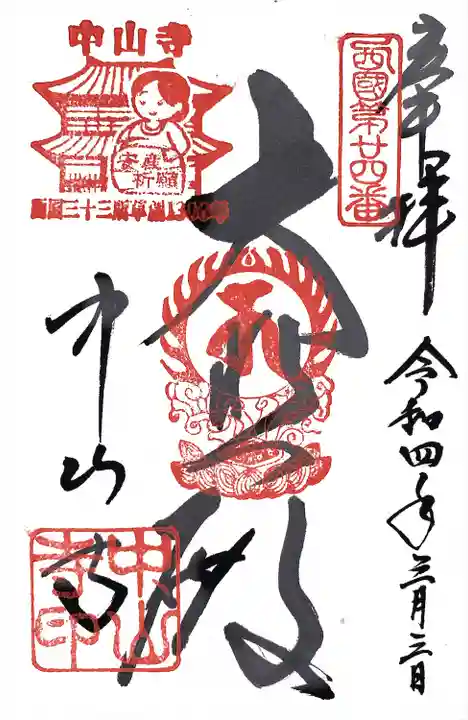 奉拝
令和四年三月二日
西國第廿四番
大悲殿
中山寺
中山寺
安産
祈願
西国三十三所草創1300年
中山寺印